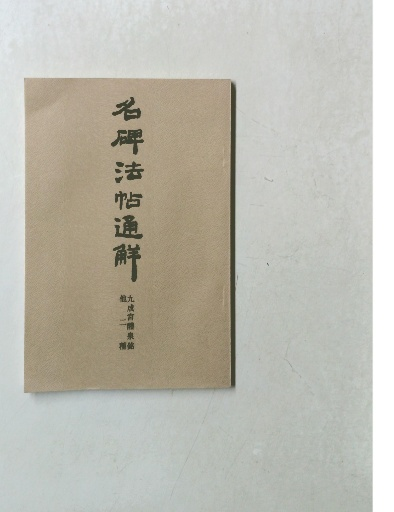 名碑法帖通解
九成宮醴泉銘
他二種